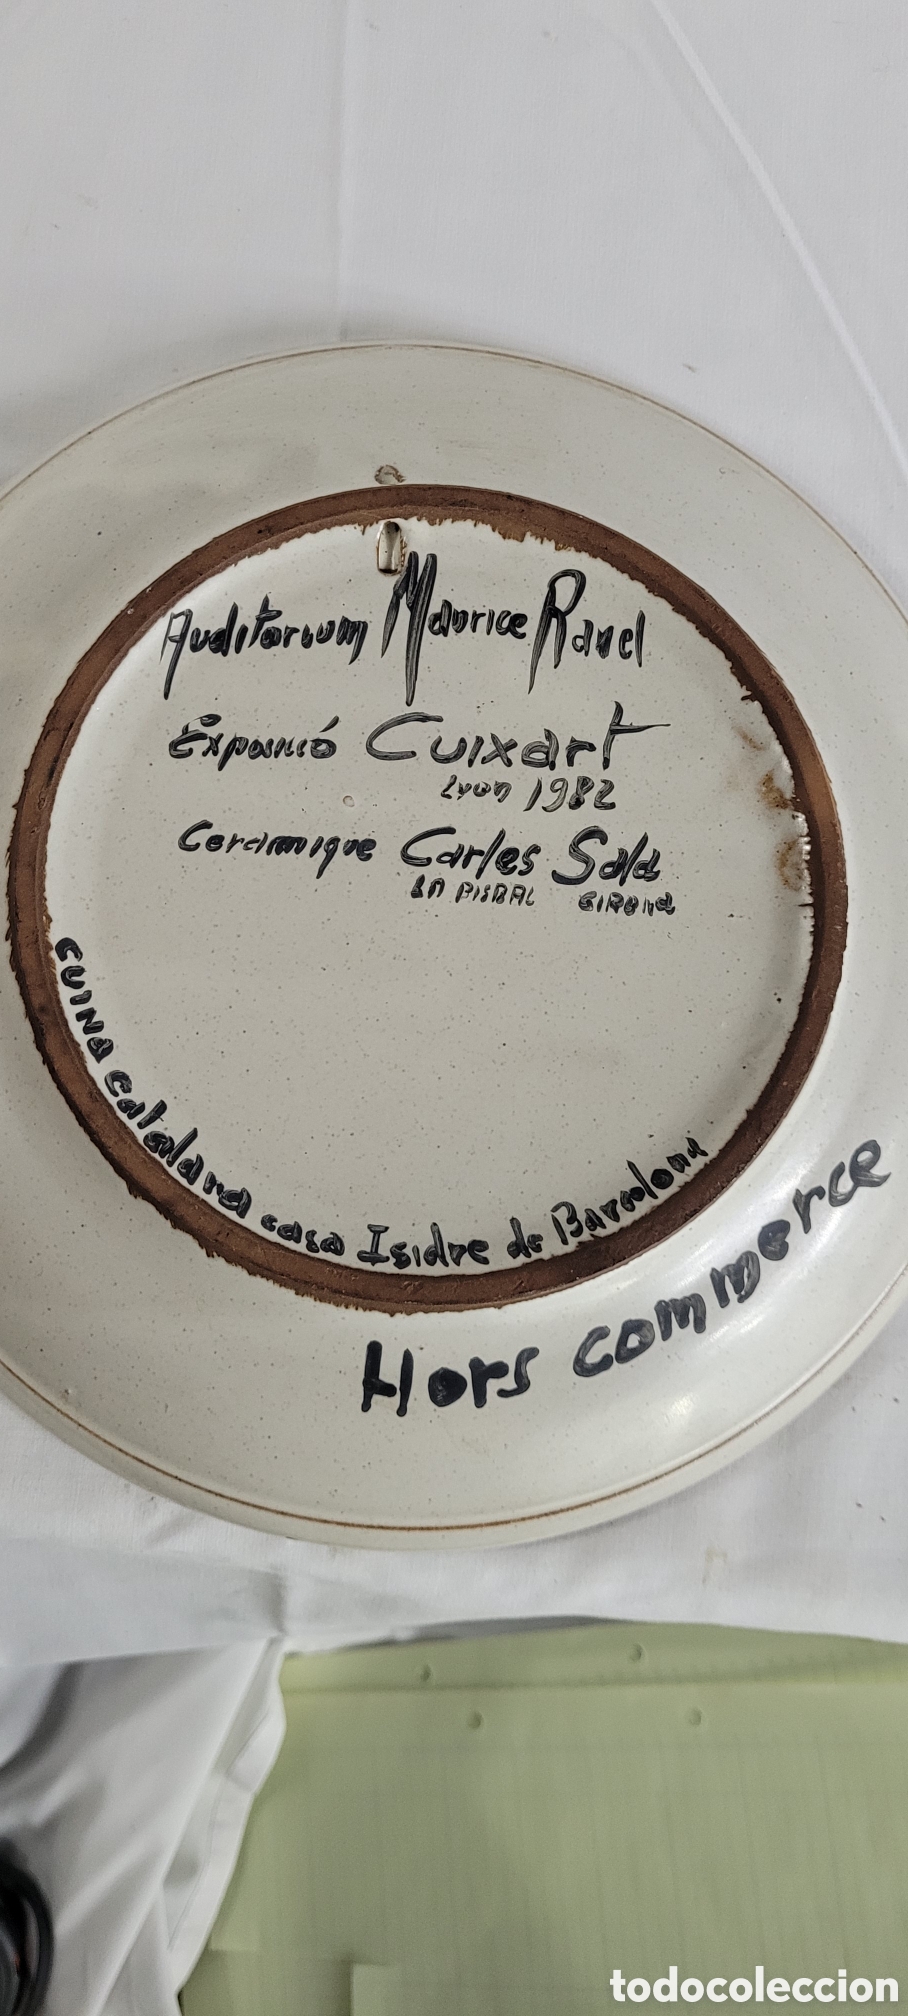 Auditorium Maurice Ravel
Exposició Cuixart
Lyon 1982
Ceramique Carles Sala
LA BISBAL GIRONA
CUINA Catalana casa Isidre de Barcelona
Hors commerce
todocoleccion